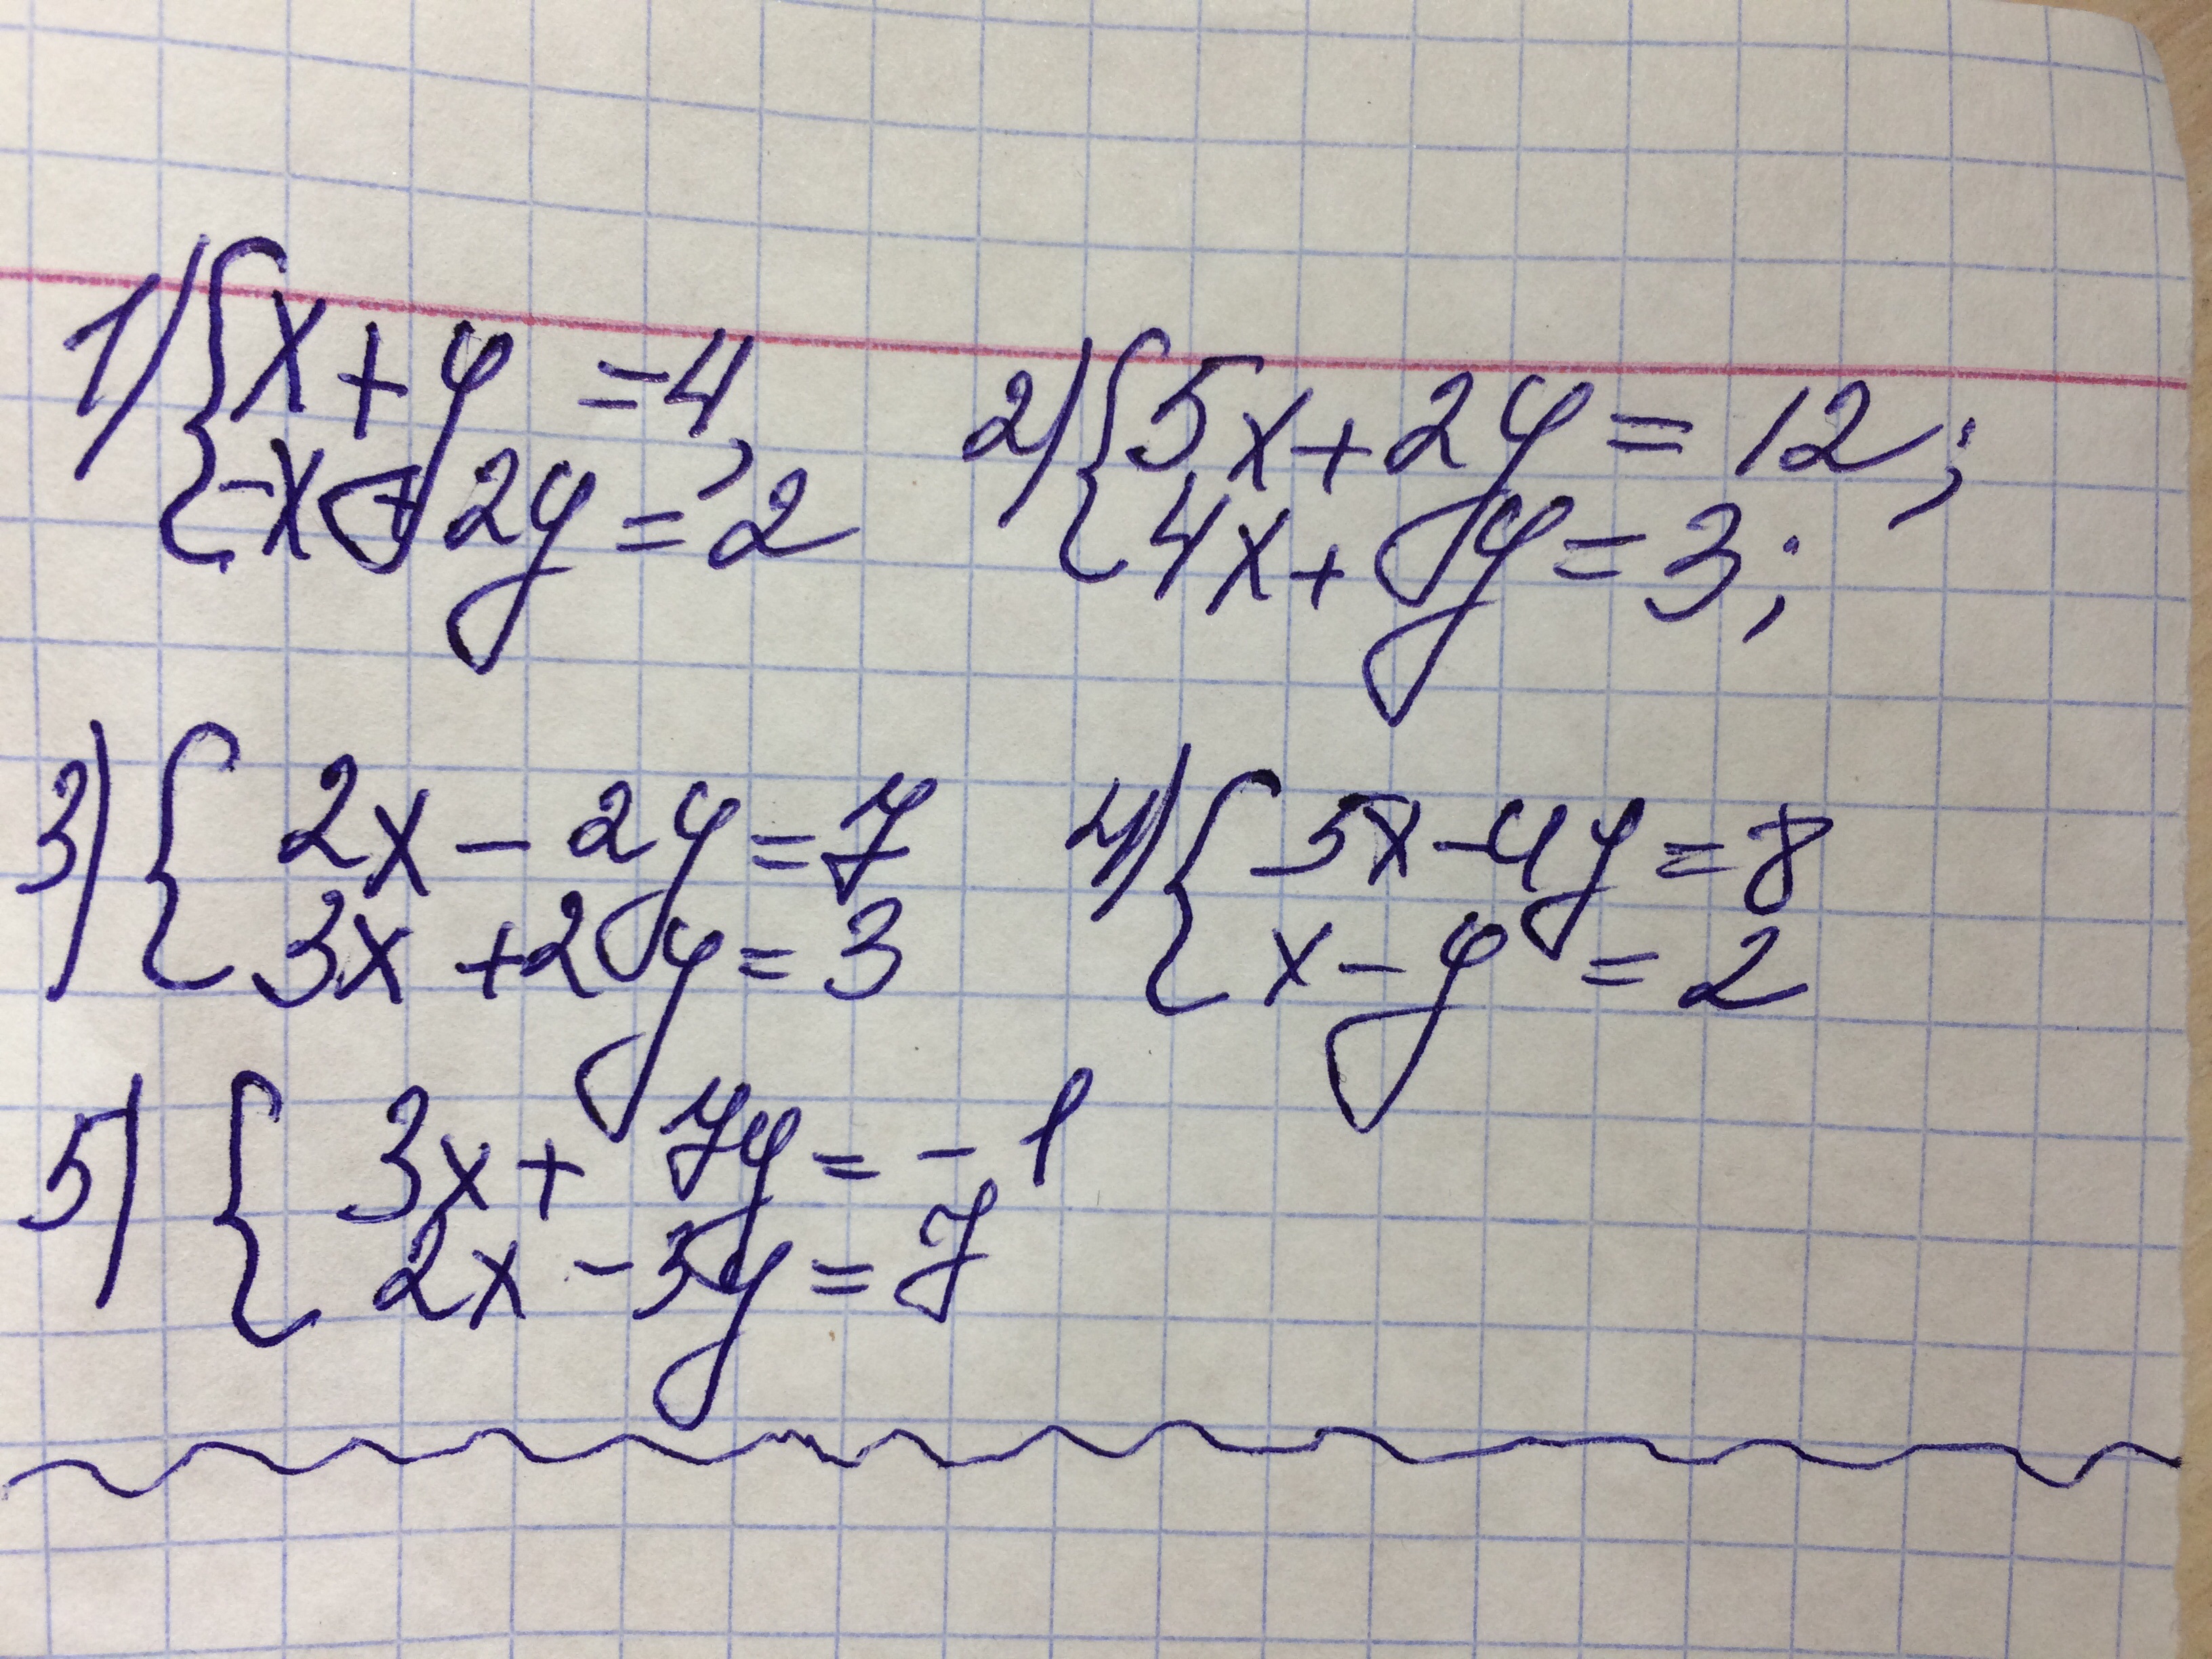 1) { x + y = 4,
-x + 2y = 2
2) { 5x + 2y = 12;
4x + y = 3;
3) { 2x - 2y = 7
3x + 2y = 3
4) { 5x - 4y = 8
x - y = 2
5) { 3x + 7y = -1
2x - 3y = 7